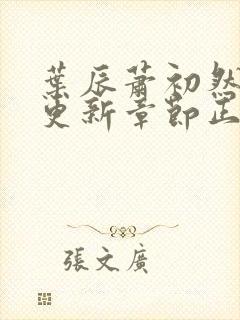 葉辰蕭初然
更新章節正
張文廣